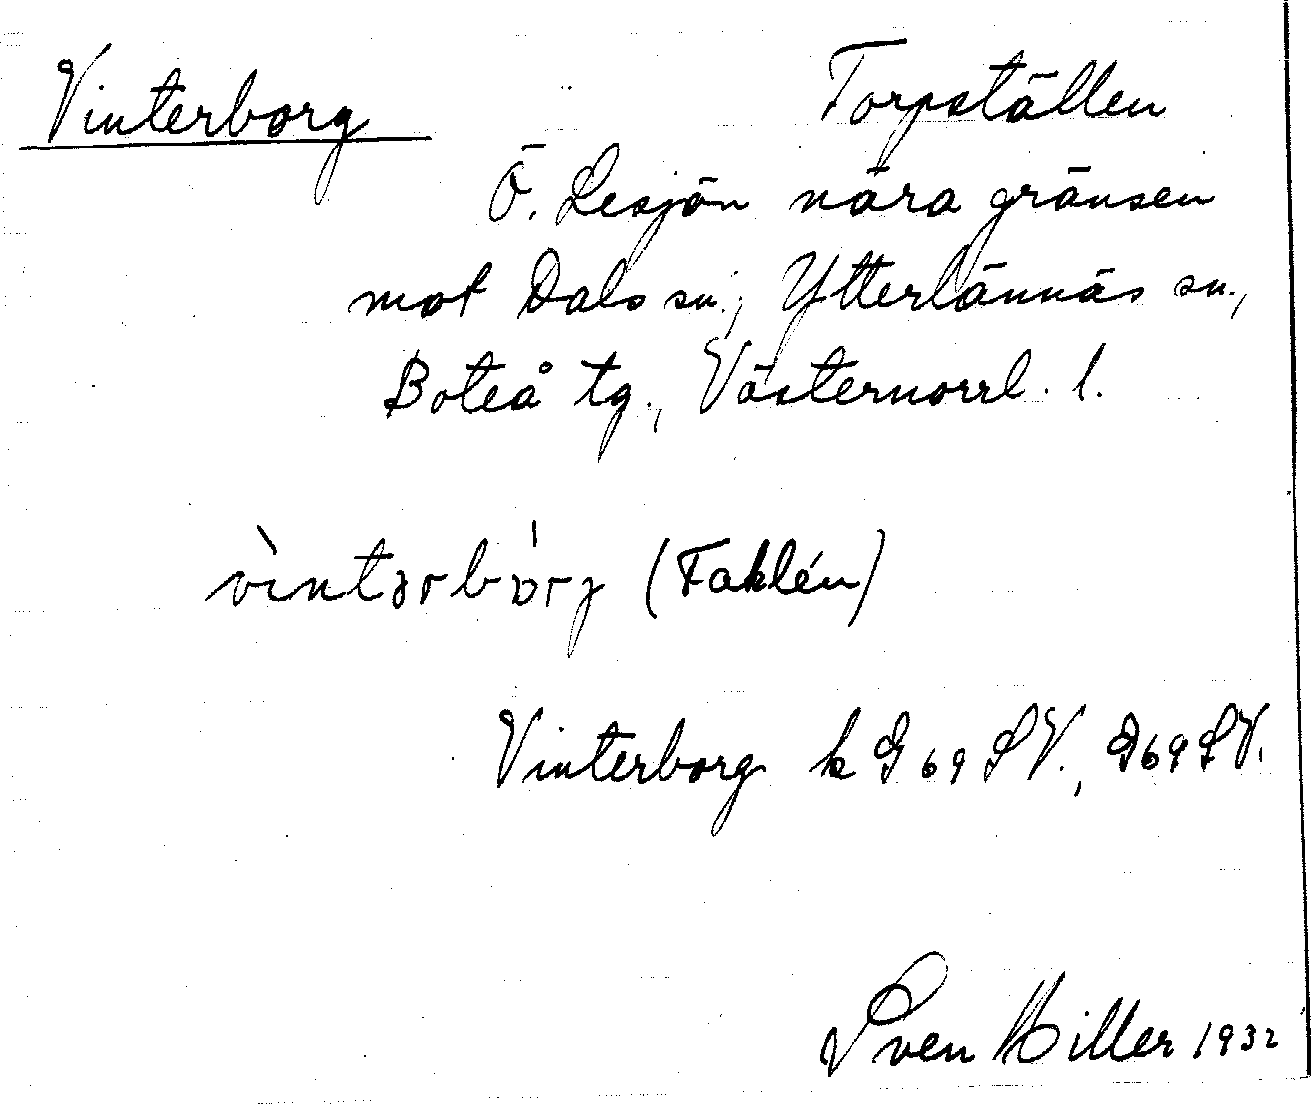 Vinterborg Torpställen
Ö. Lesjön nära gränsen
mot Dals sn., Ytterlännäs sn.,
Boteå tg., Västernorrl. l.
vìntərbórj (Faklén)
Vinterborg k G 69 SV., G 69 SV.
Sven Hiller 1932